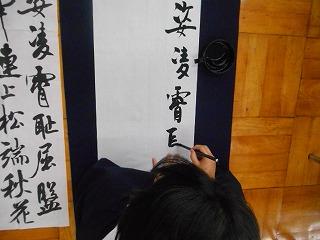 姿凌霄
姿凌霄耻屈盤
連上松端秋花